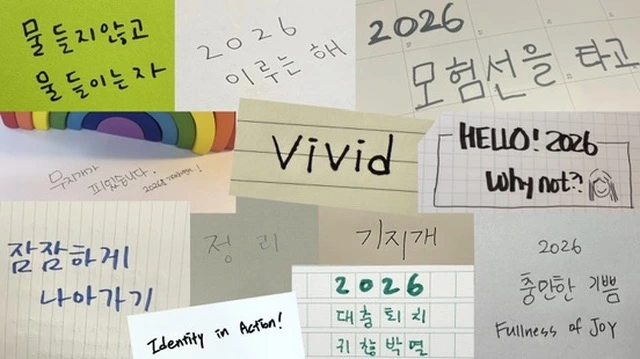 물들지않고
물들이는자
2026
이루는 해
2026
모험선을 타고
무지개가
피었습니다.
Vivid
HELLO! 2026
Why not?!
잠잠하게
나아가기
정리
기지개
2026
대충퇴치
귀찮박멸
2026
충만한 기쁨
Fullness of JOY
Identity in Action!